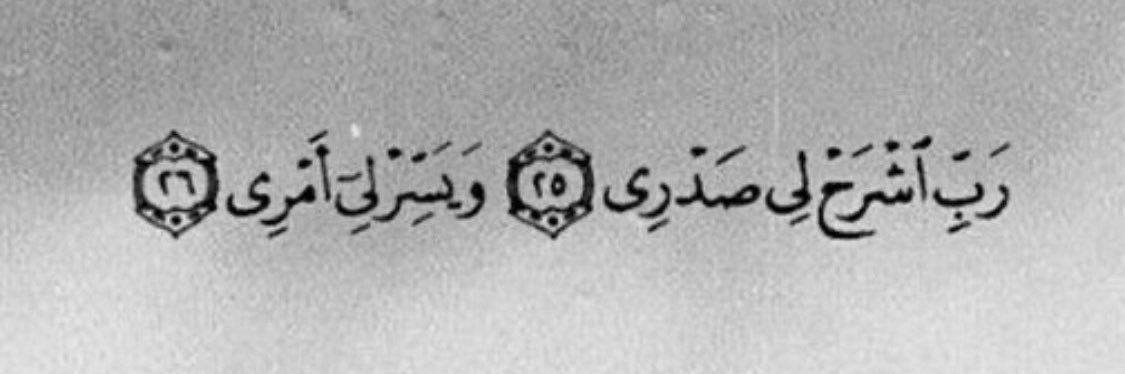 رَبِّ ٱشْرَحْ لِي صَدْرِي ٢٥ وَيَسِّرْ لِيٓ أَمْرِي ٢٦